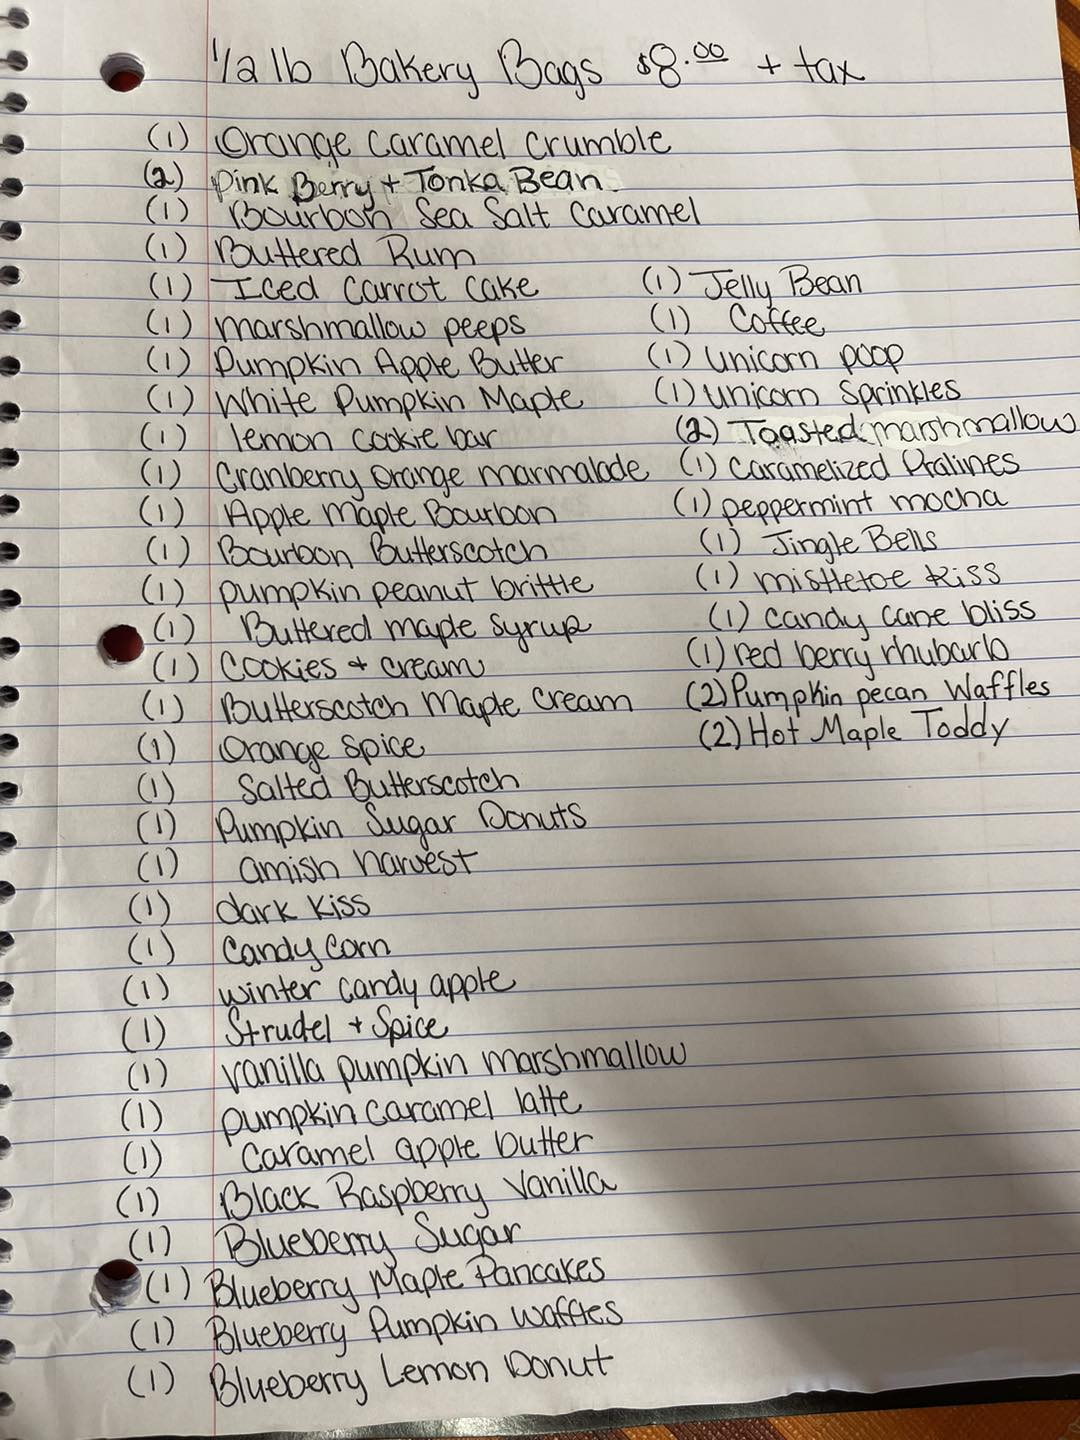 1/2 lb Bakery Bags $8.00 + tax
(1) Orange Caramel Crumble
(2) Pink Berry + Tonka Bean.
(1) Bourbon Sea Salt Caramel
(1) Buttered Rum
(1) Iced Carrot Cake
(1) marshmallow peeps
(1) Pumpkin Apple Butter
(1) White Pumpkin Maple
(1) lemon cookie bar
(1) Cranberry orange marmalade
(1) Apple Maple Bourbon
(1) Bourbon Butterscotch
(1) pumpkin peanut brittle
(1) Buttered maple syrup
(1) Cookies + cream
(1) Butterscotch Maple Cream
(1) Orange Spice
(1) Salted Butterscotch
(1) Pumpkin Sugar Donuts
(1) amish harvest
(1) dark kiss
(1) Candy Corn
(1) winter candy apple
(1) Strudel + Spice
(1) vanilla pumpkin marshmallow
(1) pumpkin caramel latte
(1) Caramel apple butter
(1) Black Raspberry Vanilla
(1) Blueberry Sugar
(1) Blueberry Maple Pancakes
(1) Blueberry Pumpkin Waffles
(1) Blueberry Lemon Donut
(1) Jelly Bean
(1) Coffee
(1) unicorn poop
(1) unicorn Sprinkles
(2) Toasted marshmallow
(1) Caramelized Pralines
(1) peppermint mocha
(1) Jingle Bells
(1) mistletoe kiss
(1) candy cane bliss
(1) red berry rhubarb
(2) Pumpkin pecan Waffles
(2) Hot Maple Toddy